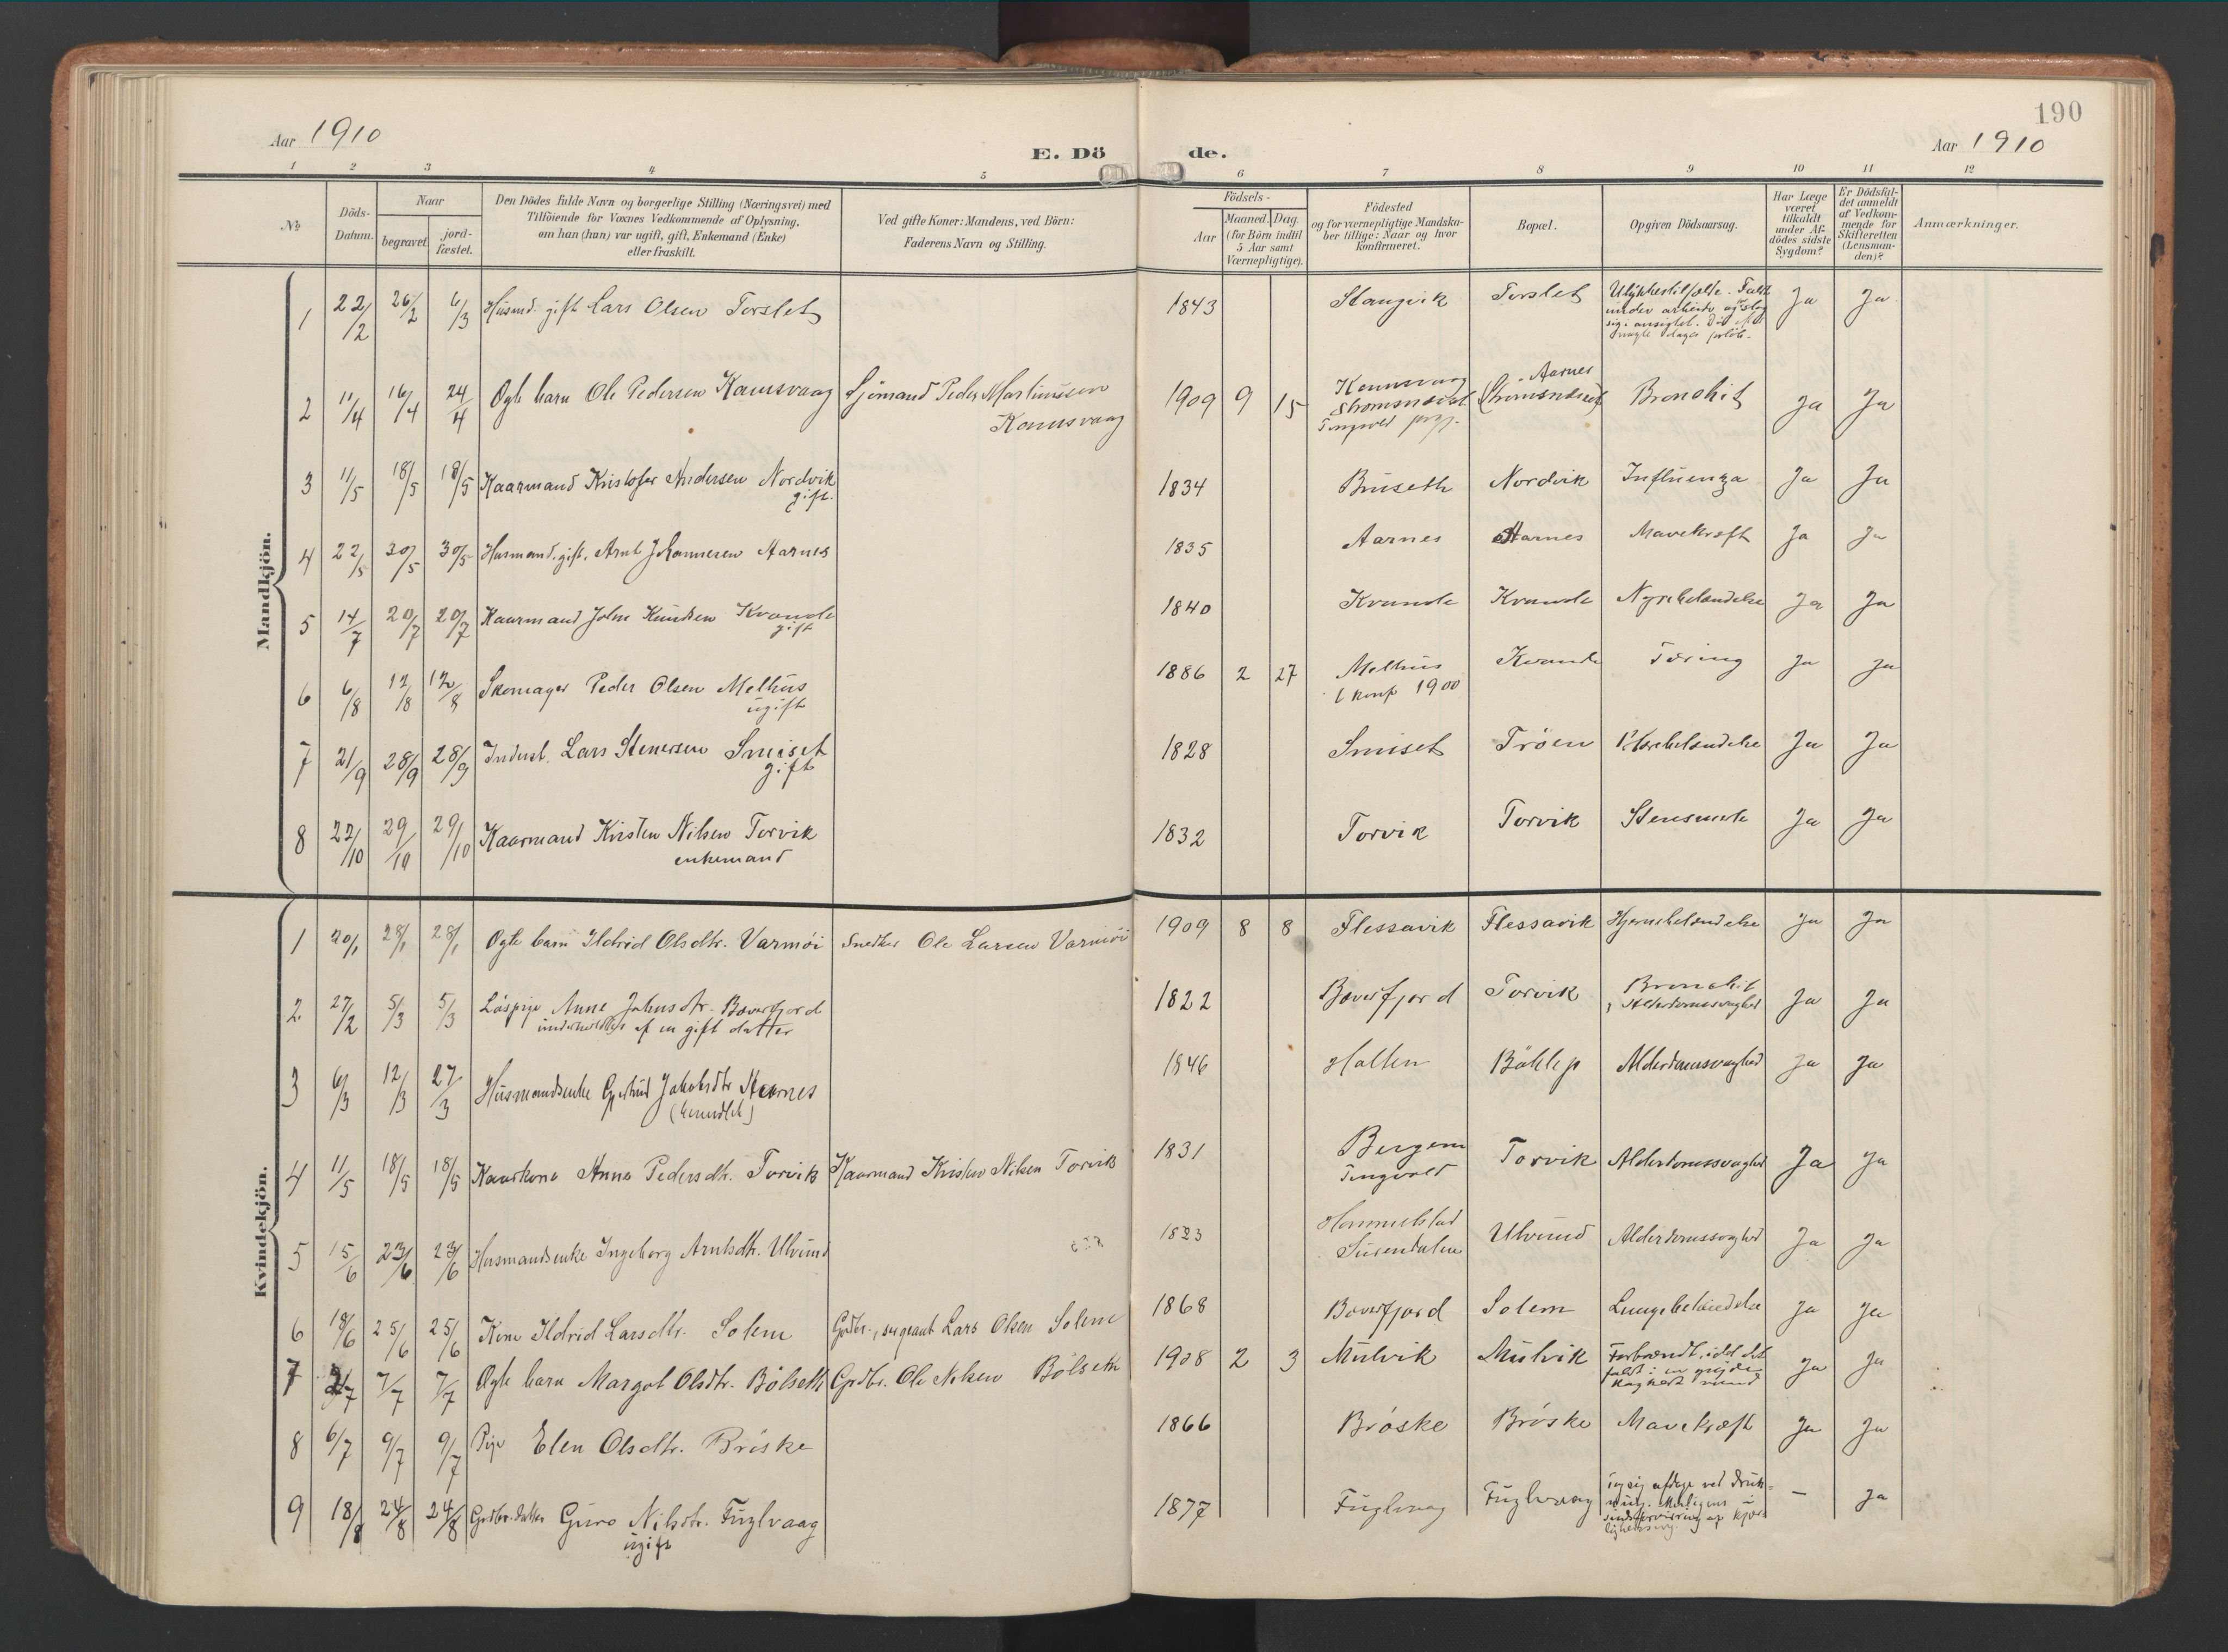 190
Aar 1910
E. Döde.
Aar 1910
1 2 3 4 5 6 7 8 9 10 11 12
No
Döds-Datum.
Naar
begravet
jord-fæstet.
Den Dödes fulde Navn og borgerlige Stilling (Næringsvei) med
Tilföiende for Voxnes Vedkommende af Oplysning,
om han (hun) var ugift, gift, Enkemand (Enke)
eller fraskilt.
Ved gifte Koner: Mandens, ved Börn:
Faderens Navn og Stilling.
Födsels-
Aar
Maaned. Dag.
(for Börn indtil
5 Aar samt
Værnepligtige).
Födested
og for værnepligtige Mandska-
ber tillige: Naar og hvor
konfirmeret.
Bopæl.
Opgiven Dödsaarsag.
Har Læge
været
tilkaldt
under Af-
dödes sidste
Sygdom?
Er Dödsfal-
det anmeldt
af Vedkom-
mende for
Skifteretten
(Lensman-
den)?
Anmærkninger.
Mandkjön.
1 22/2 26/2 6/3 Husmd. gift Lars Olsen Torslet 1843 Stangvik Torslet Ulykkestilfælde. Faldt Ja Ja
under arbeide og slog
sig i ansigtet. Död efter
nogle dages forløb.
2 11/4 16/4 24/4 Ægte barn Ole Pedersen Kamsvaag Sjömand Peder Martinussen 1909 9 15 Kamsvaag Aarnes Bronchit Ja Ja
Kamsvaag Strömsnæset Strömsnæset
Tingvold prgj.
3 11/5 18/5 18/5 Kaarmand Kristofer Andersen Nordvik 1834 Bruseth Nordvik Influenza Ja Ja
gift.
4 22/5 30/5 30/5 Husmand, gift, Arnt Johannesen Aarnes 1835 Aarnes Aarnes Mavekræft Ja Ja
5 14/7 20/7 20/7 Kaarmand John Knudsen Kvande 1840 Kvande Kvande Nyrebetændelse Ja Ja
gift
6 6/8 12/8 12/8 Skomager Peder Olsen Melhus 1886 2 27 Melhus Kvande Tæring Ja Ja
ugift konf 1900
7 21/9 28/9 28/9 Inderst. Lars Stenersen Smiset 1828 Smiset Tröen Ja Ja
gift
8 22/10 29/10 29/10 Kaarmand Kristen Nilsen Torvik 1832 Torvik Torvik Stensmerte Ja Ja
enkemand
Kvindekjön.
1 20/1 28/1 28/1 Ægte barn Ildrid Olsdtr. Varmöi Snedker Ole Larsen Varmöi 1909 8 8 Flessavik Flessavik Hjernebetændelse Ja Ja
2 27/2 5/3 5/3 Löspige Anne Johnsdtr. Bæverfjord 1822 Bæverfjord Torvik Bronchit Ja Ja
underholdtes af en gift datter Alderdomssvaghed
3 6/3 12/3 27/3 Husmandsenke Gjertrud Jakobsdtr Aarnes 1846 Halten Alderdomssvaghed Ja Ja
4 11/5 18/5 18/5 Kaarkone Anne Pedersdtr. Torvik Kaarmand Kristen Nilsen Torvik 1831 Bergem Torvik Alderdomssvaghed Ja Ja
Tingvold
5 15/6 23/6 23/6 Husmandsenke Ingeborg Arntsdtr. Ulvund 1823 Hammelstad Ulvund Alderdomssvaghed Ja Ja
Surendalen
6 18/6 25/6 25/6 Kone Ildrid Larsdtr. Solem Grdbr., sergeant Lars Olsen Solem 1868 Bæverfjord Solem Lungebetændelse Ja Ja
7 2/7 7/7 7/7 Ægte barn Margot Olsdtr. Bölseth Grdbr. Ole Nilsen Bölseth 1908 2 3 Mulvik Mulvik Forbrændt, idet det Ja Ja
faldt i en gryde
koghedt vand
8 6/7 9/7 9/7 Pige Elen Olsdtr. Bröske 1866 Bröske Bröske Mavekræft Ja Ja
9 18/8 24/8 24/8 Grdbr.datter Guro Nilsdtr. Fuglvaag 1877 Fuglvaag Fuglvaag sig afdage ved druk- – Ja
ugift ning. Muligens i
sindsforvirring af kjær-
lighedssorg.